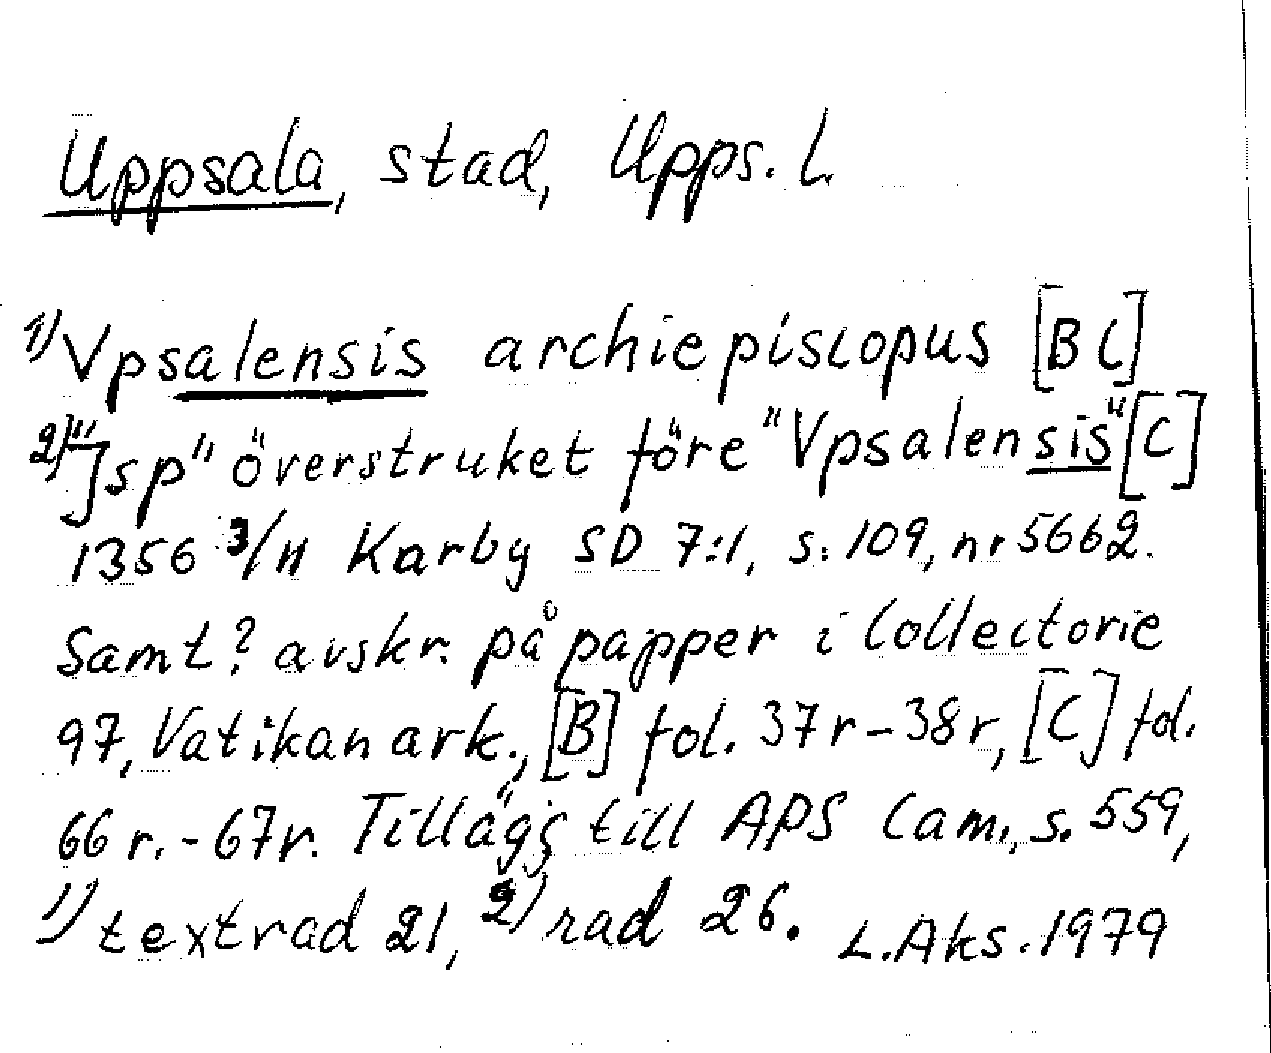 Uppsala, stad, Upps. L.
1) Vpsalensis archiepiscopus [B C]
2) "Jsp" överstruket före "Vpsalensis" [C]
1356 3/11 Karby SD 7:1, s. 109, nr 5662.
Samt? avskr. på papper i Collectorie
97, Vatikanark., [B] fol. 37r-38r, [C] fol.
66r.-67r. Tillägg till APS Cam., s. 559,
1) textrad 21, 2) rad 26. L.Aks. 1979